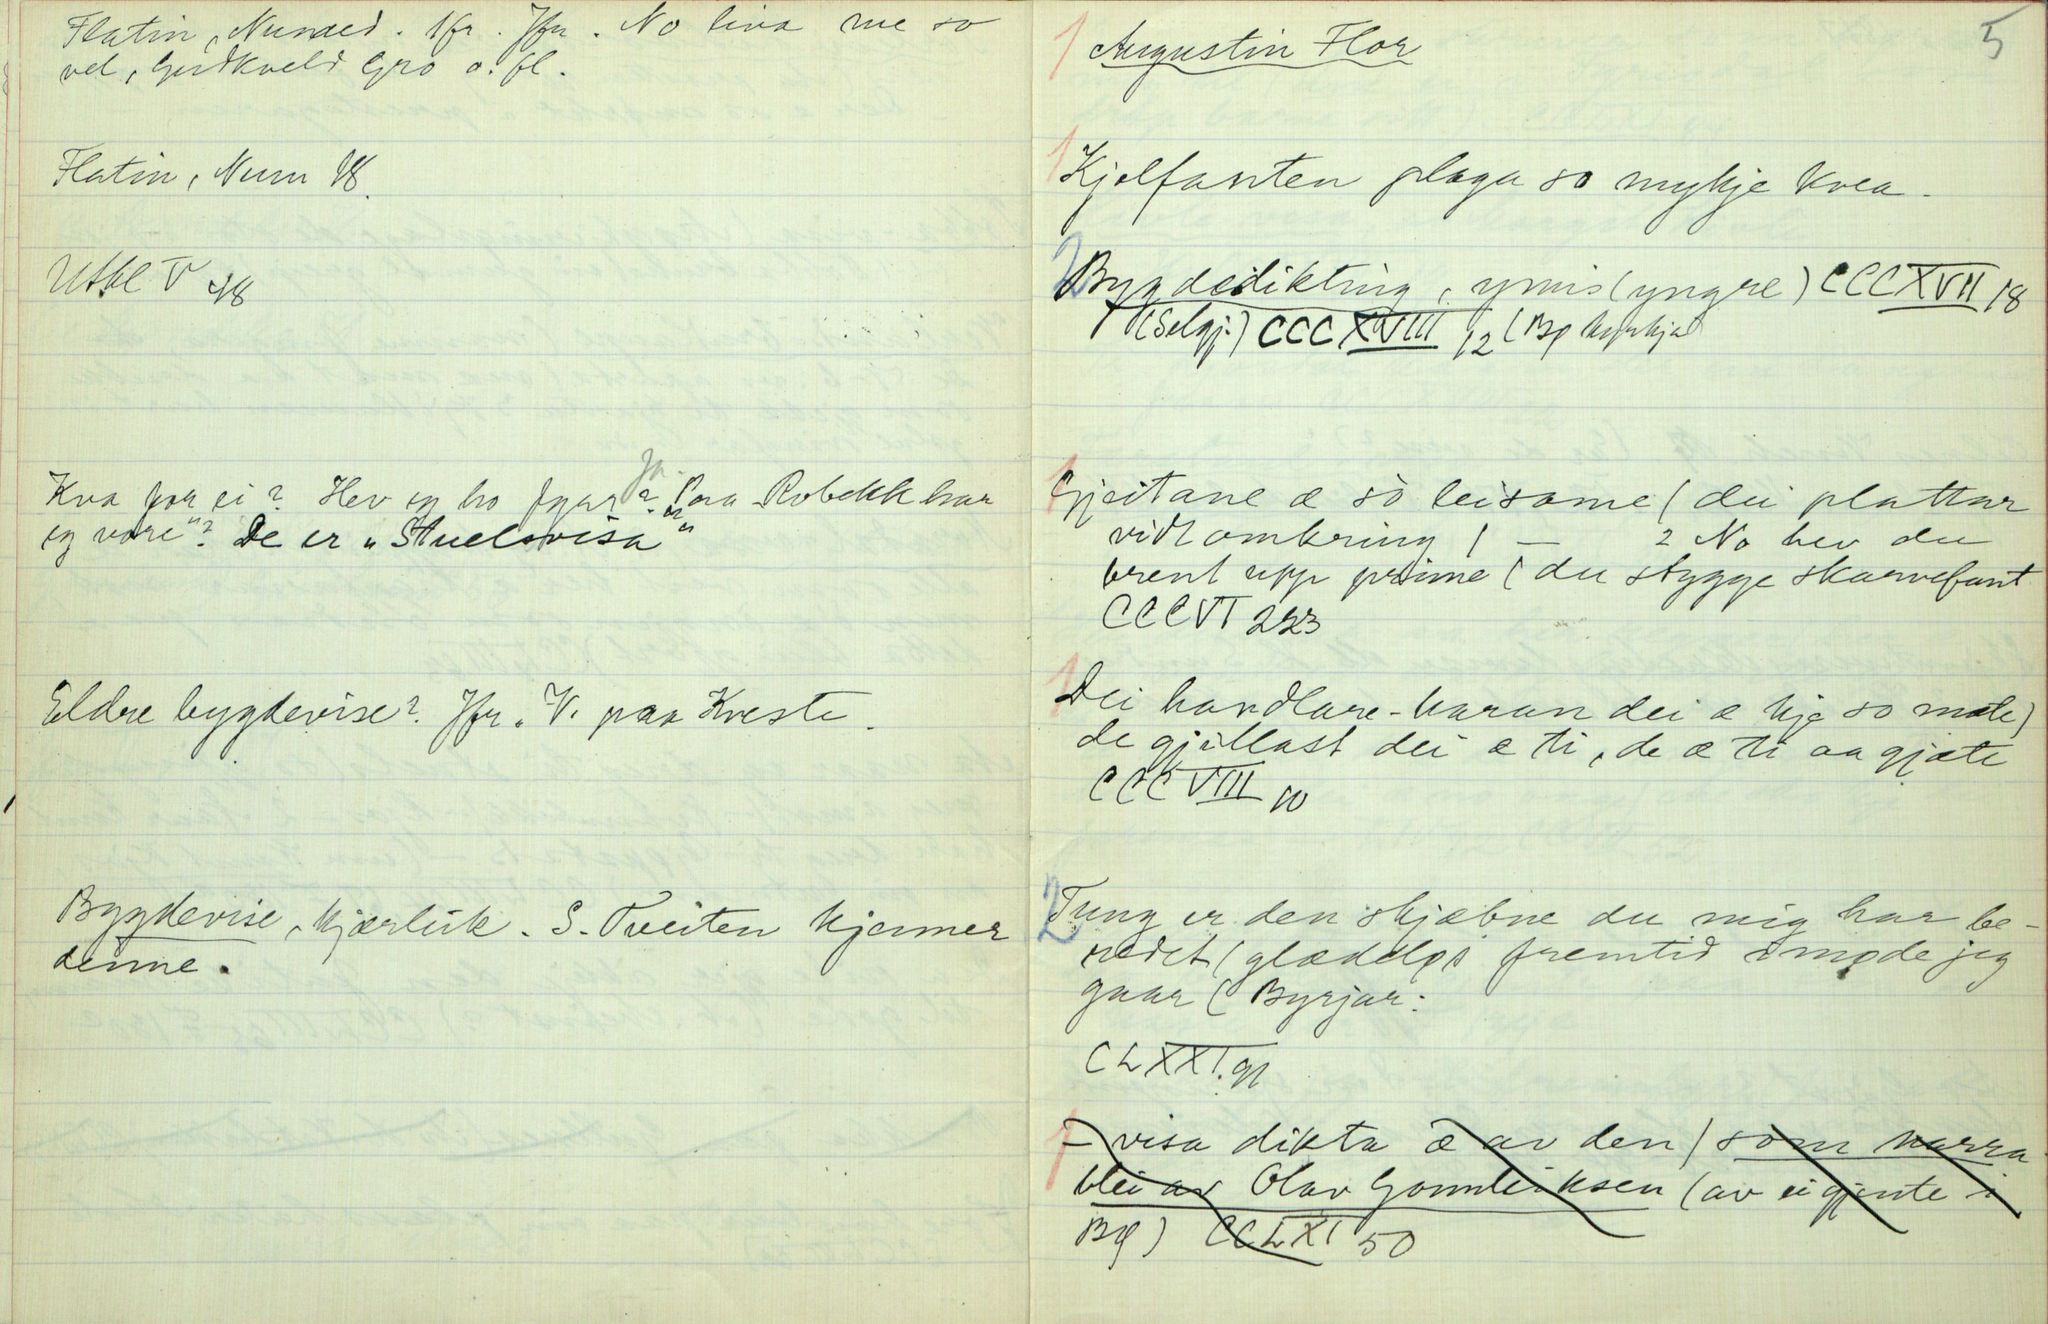 Flatin, Numed. 1fr. Jfr. No liva me so
vel, Gro o. fl.
Flatin, Num 18.
Utkl V 48
Kva for ei? Hev eg ho fyrr? Ja. „Paa Robekk har
eg vore"? De er „Stuelsvisa"
Eldre bygdevise? Jfr. V. paa Kveste.
Bygdevise, kjærleik. S. Tveiten kjenner
denne.
5
1 Augustin Flor
1 Kjolfanten plaga so mykje kvea.
2 Bygdedikting, ymis (yngre) CCCXVII 18
(Selgj.) CCCXVIII 12 (Bø kyrkja
1 Gjeitane æ so leisame / dei plattar
vidt omkring / — 2 No hev du
brent upp prime / du stygge skarvefant
CCCVI 223
1 Dei handlare-karan dei æ kje so mæte /
de gjillast dei æ ti, de æ ti aa gjæte
CCCVIII 10
2 Tung er den skjæbne du mig har be-
redet / glædeløs fremtid imøde jeg
gaar / Byrjar:
CLXXI. 91
1 – visa dikta æ av den / som narra
blei av Olav Gonnleiksen (av ei gjente i
Bø) CCLXI 50